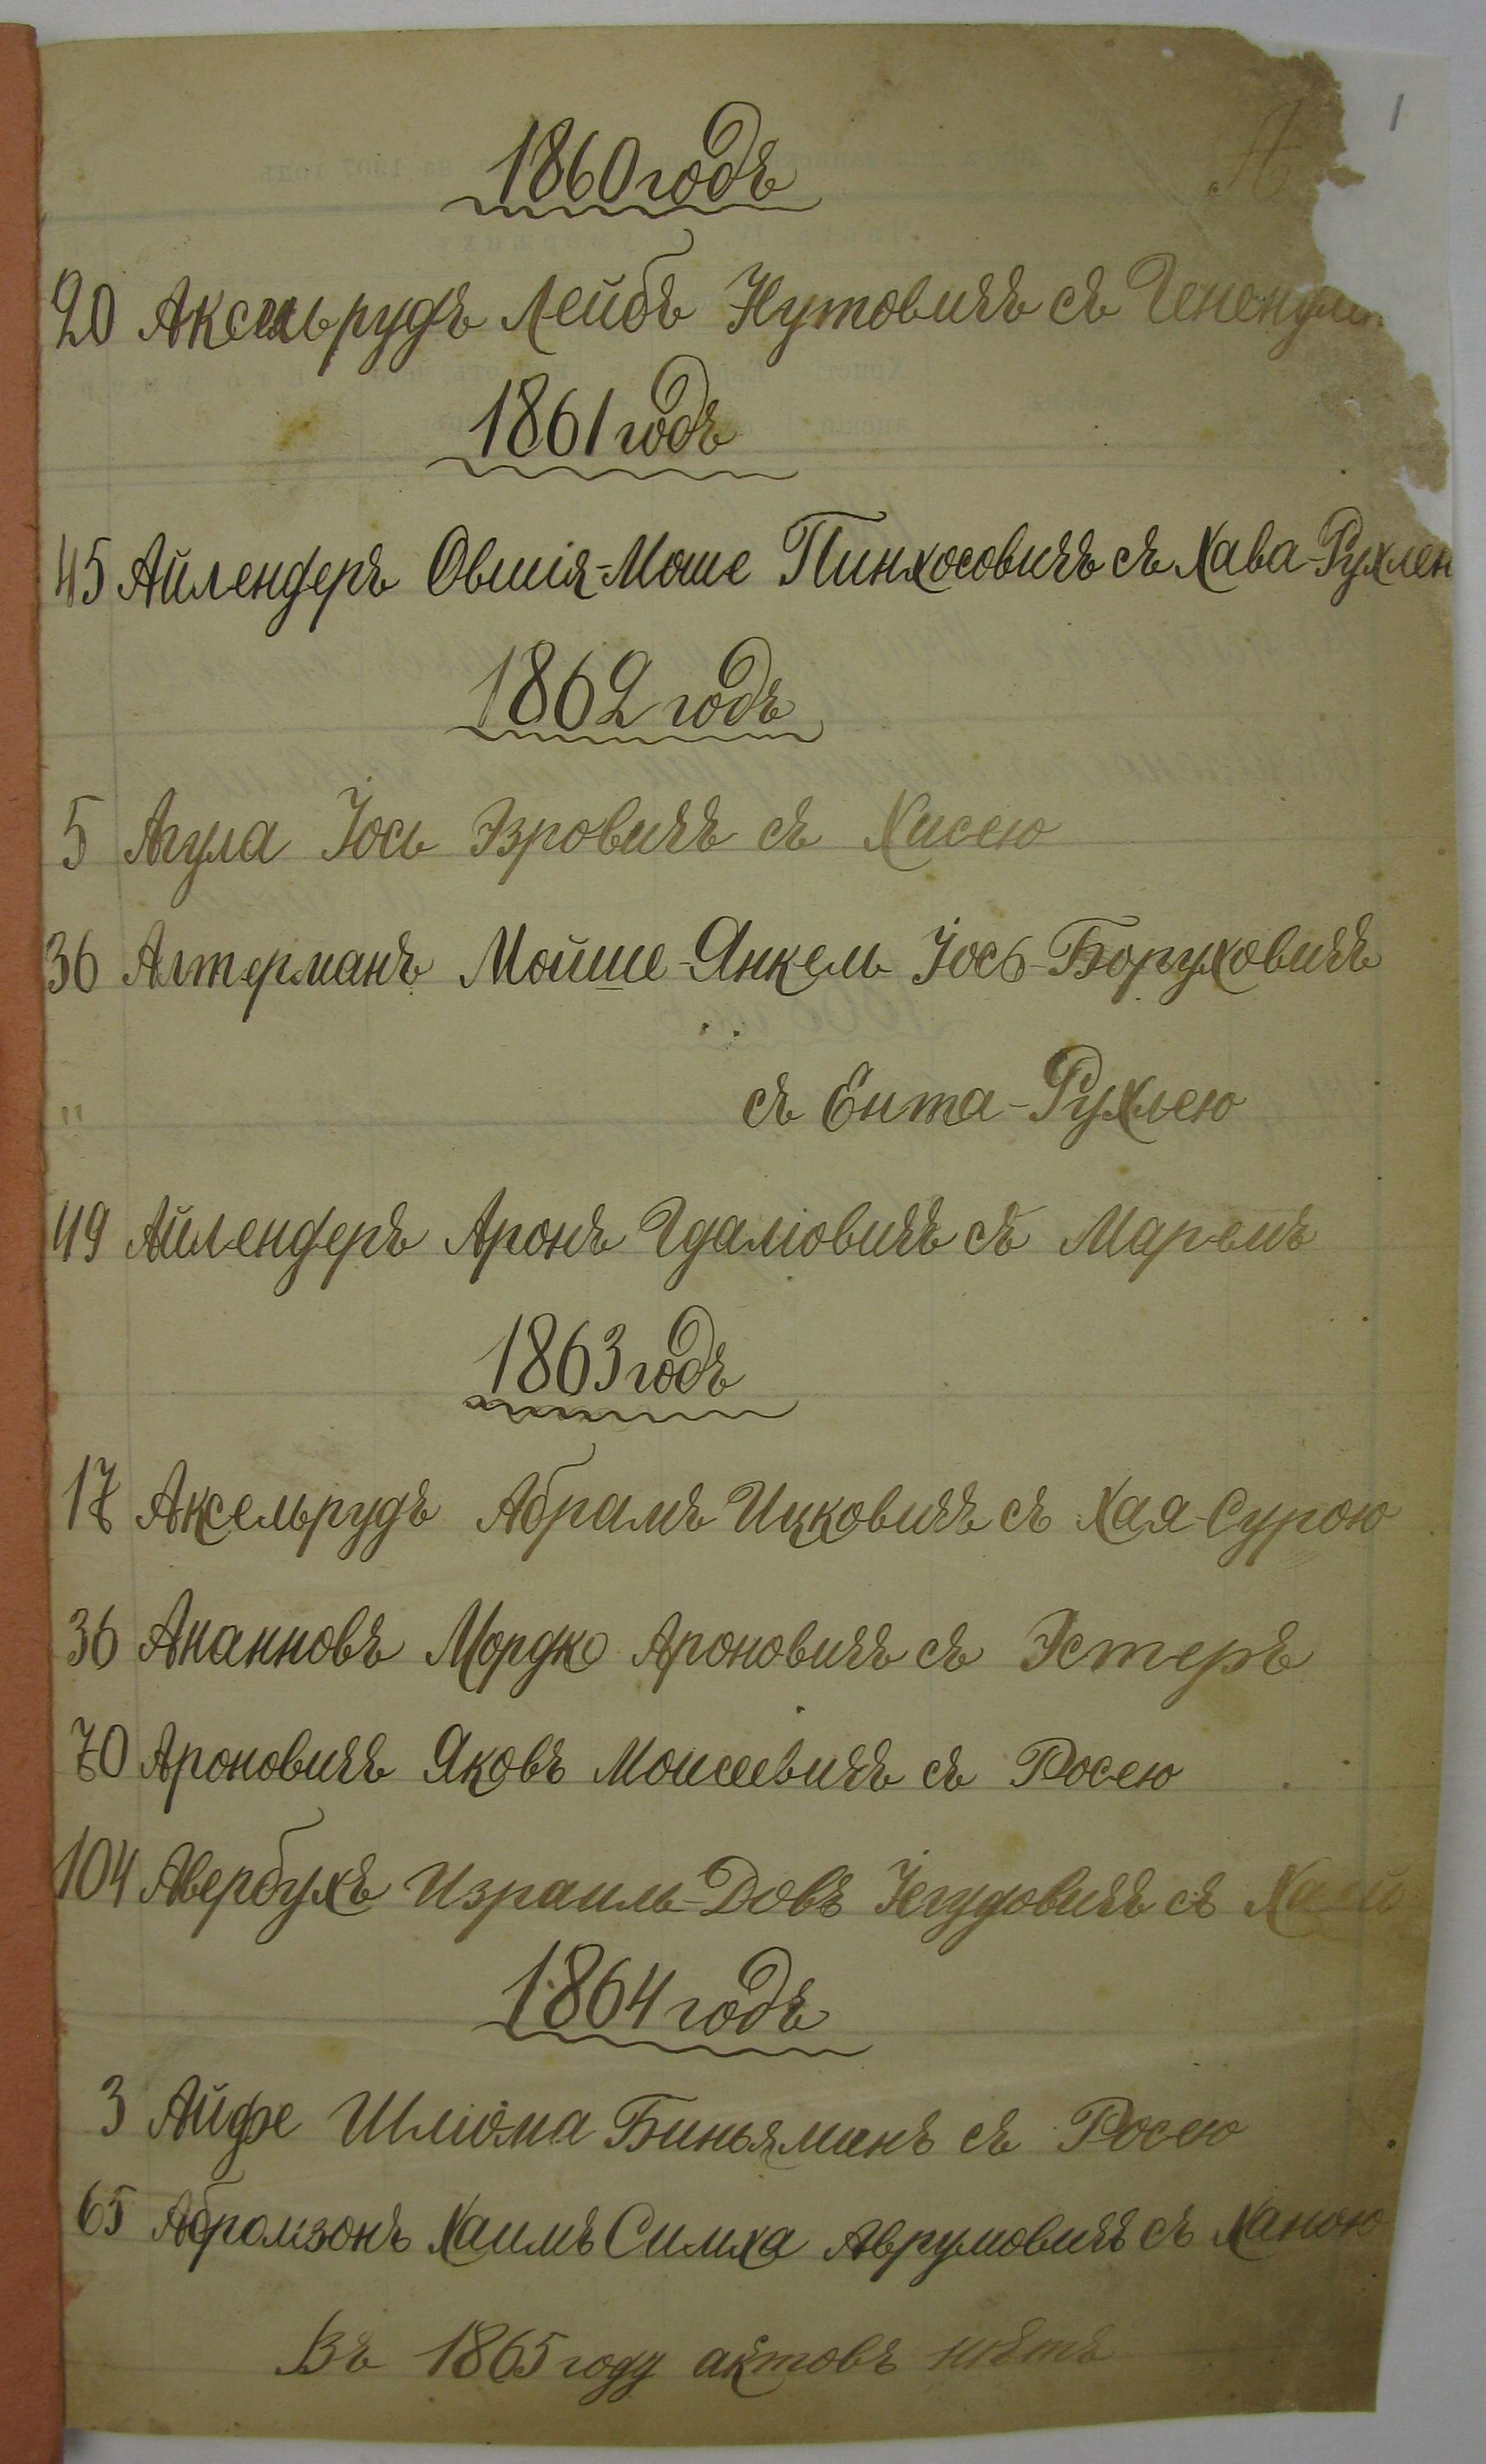 1
А
1860 годъ
20 Аксельрудъ Лейбъ Нутовичъ съ
1861 годъ
45 Айлендеръ Овшія-Моше Пинхосовичъ съ Хава-Рухлею
1862 годъ
5 Агула Іось Эзровичъ съ Хисею
36 Алтерманъ Мойше-Янкель Іось-Боруховичъ
" съ Ента-Рухлею
49 Айлендеръ Аронъ Гдаліовичъ съ Маремъ
1863 годъ
17 Аксельрудъ Абрамъ Ицковичъ съ Хая-Сурою
36 Ананновъ Мордко Ароновичъ съ Эстеръ
70 Ароновичъ Яковъ Моисеевичъ съ Росею
104 Авербухъ Израиль-Довъ Іегудовичъ съ Хаей
1864 годъ
3 Айфе Шліома Биньяминъ съ Росею
65 Абромзонъ Хаимъ Симха Аврумовичъ съ Ханою
Въ 1865 году актовъ нѣтъ